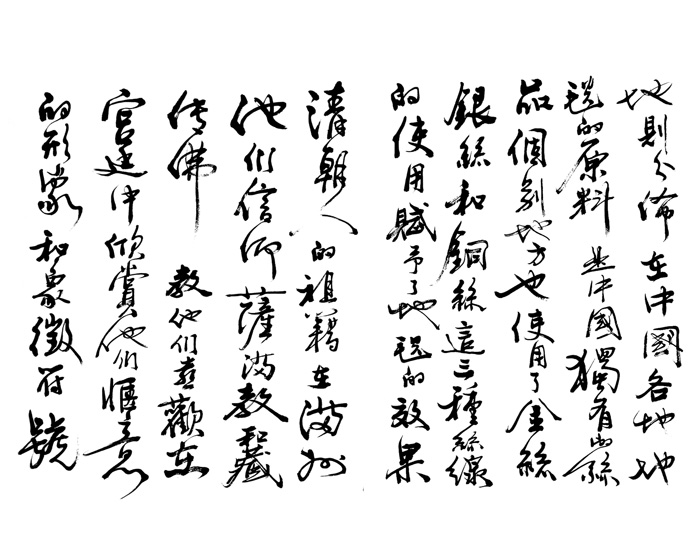 地則分在中國各地地
毯的原料 是中國獨有的絲
品個別地方也使用了金絲
銀絲和銅絲這三種絲線
的使用賦予了地毯的效果
清朝人的祖籍在滿州
他们信仰薩滿教和藏
传佛 教他们喜歡在
宮廷中欣賞他们愜意
的形象和象徵符號